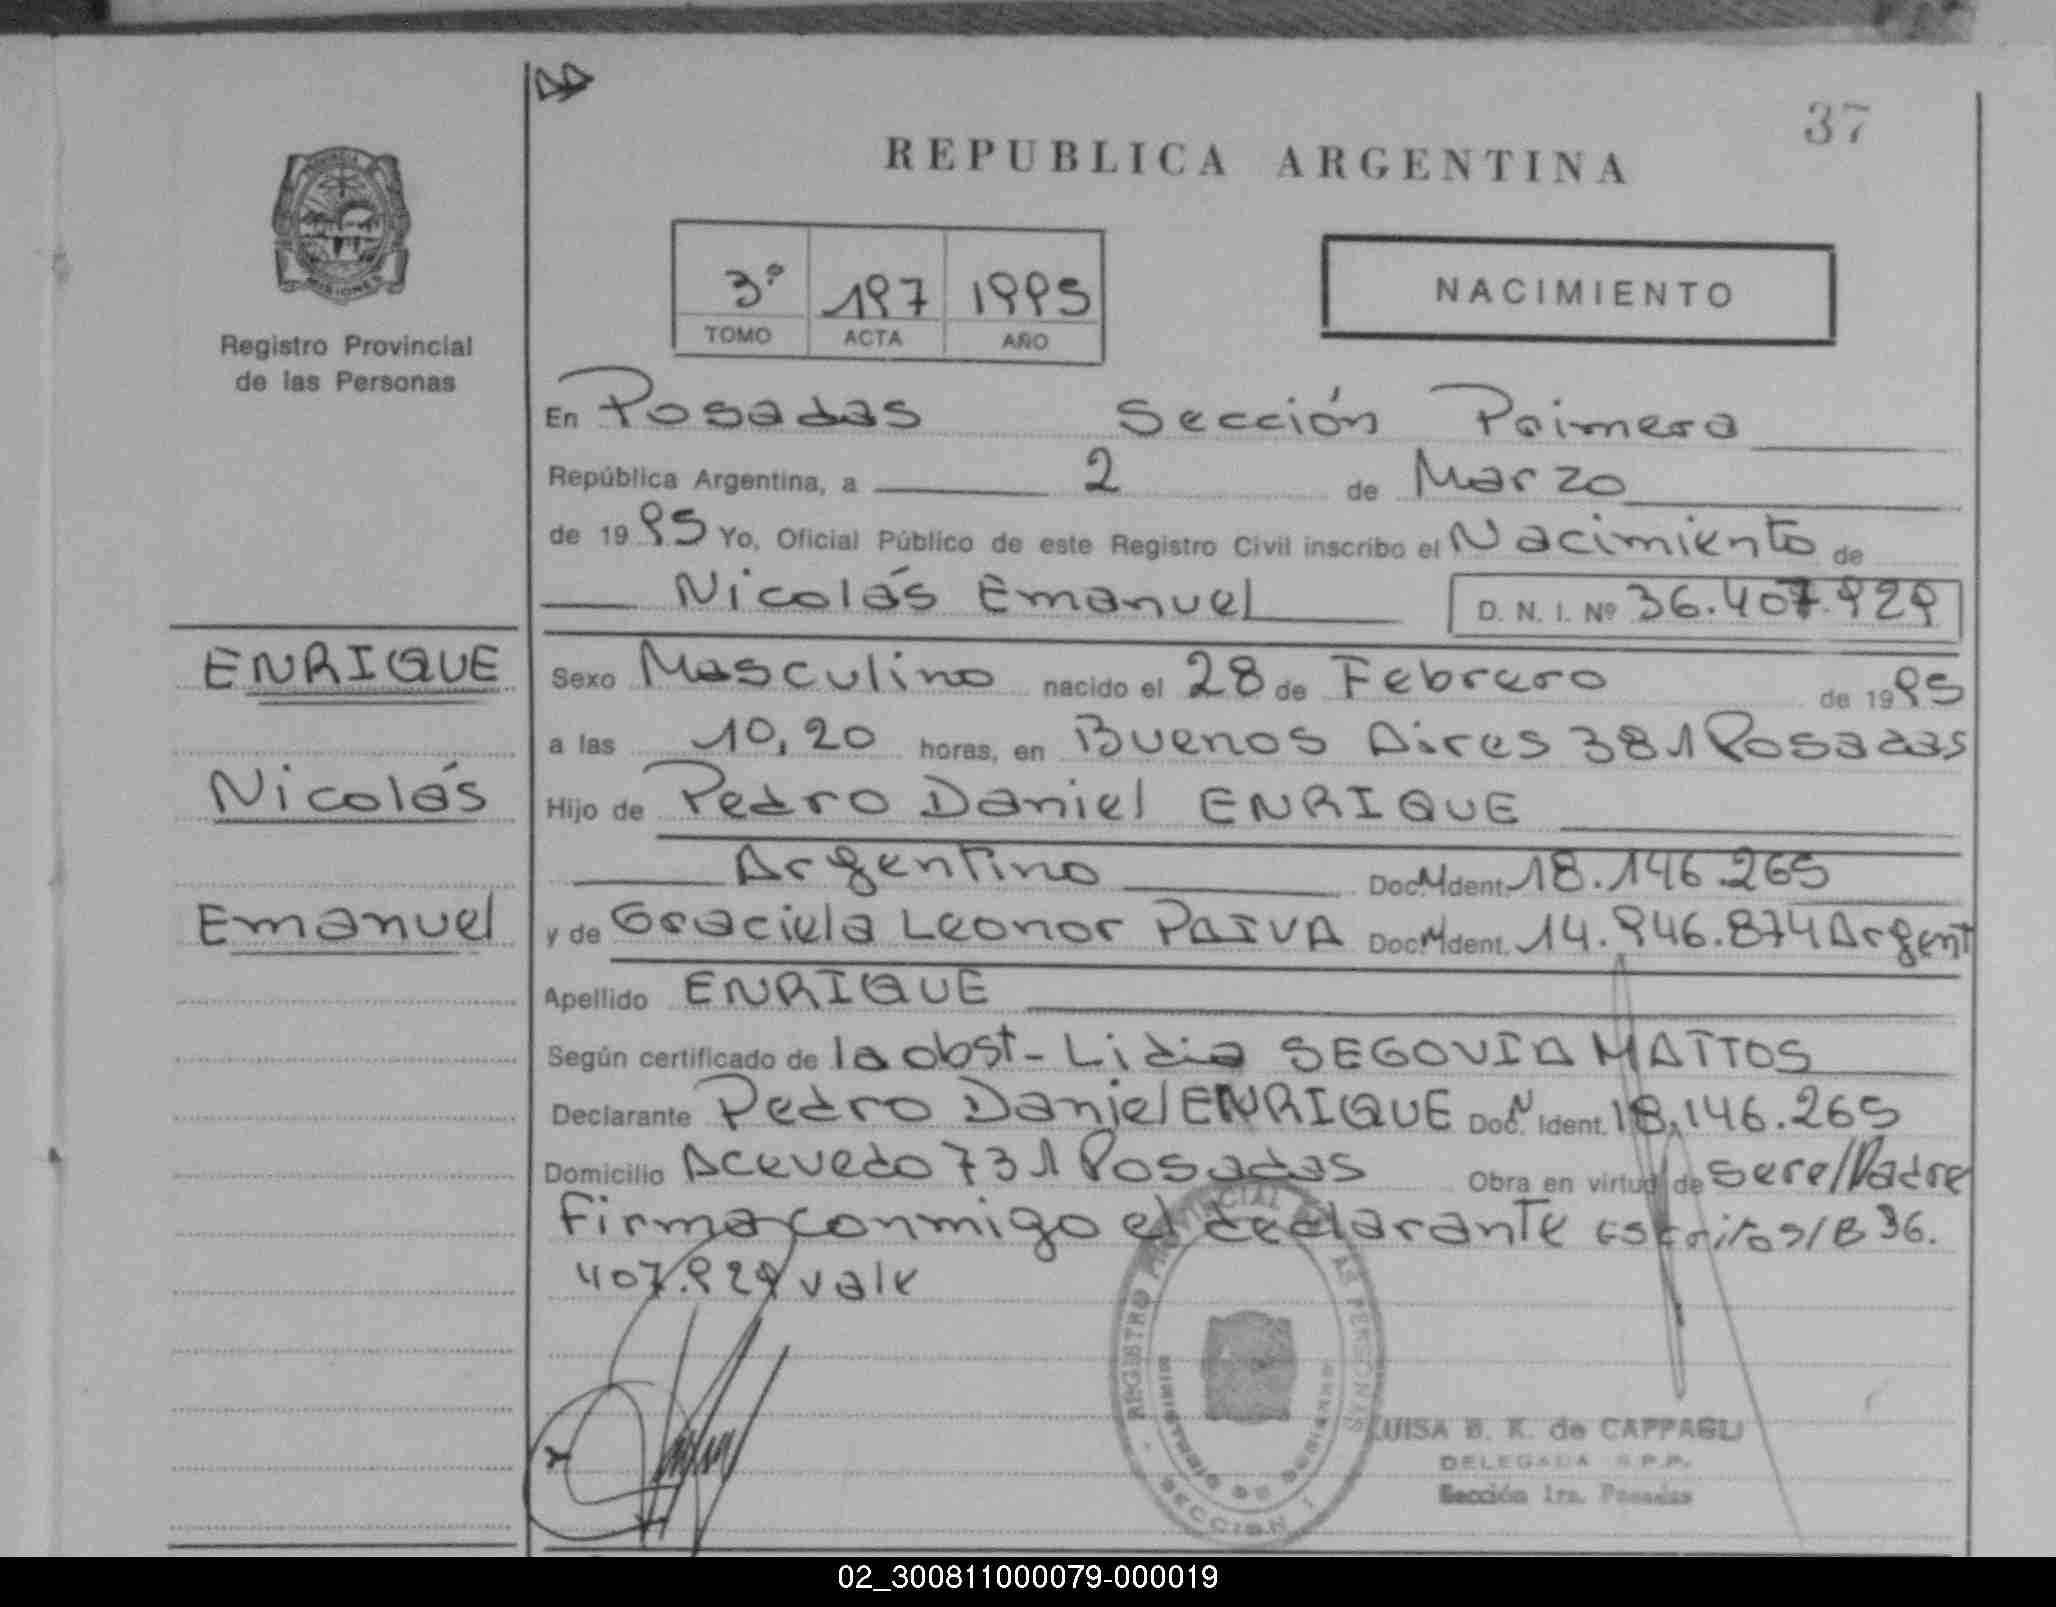 37
REPUBLICA ARGENTINA
MISIONES
Registro Provincial
de las Personas
3º 197 1995
TOMO ACTA AÑO
NACIMIENTO
En Posadas Sección Primera
República Argentina, a 2 de Marzo
de 1995 Yo, Oficial Público de este Registro Civil inscribo el Nacimiento de
Nicolás Emanuel D. N. I. Nº 36.407.929
ENRIQUE
Nicolás
Emanuel
Sexo Masculino nacido el 28 de Febrero de 1995
a las 10,20 horas, en Buenos Aires 381 Posadas
Hijo de Pedro Daniel ENRIQUE
Argentino Doc. N Ident. 18.146.265
y de Graciela Leonor PAIVA Doc. N Ident. 14.946.874 Argent
Apellido ENRIQUE
Según certificado de la obst- Lidia SEGOVIA MATTOS
Declarante Pedro Daniel ENRIQUE Doc. N Ident. 18.146.265
Domicilio Acevedo 731 Posadas Obra en virtud de sere/Padre
Firma conmigo el declarante Escrito s/B 36.
407.929 vale
REGISTRO PROVINCIAL DE LAS PERSONAS
MINISTERIO DE GOBIERNO
SECCION 1
LUISA B. K. de CAPPAGLI
DELEGADA R.P.P.
Sección 1ra. Posadas
02_300811000079-000019